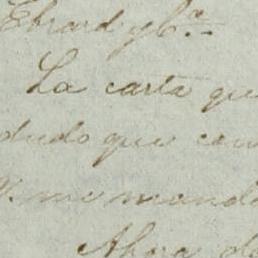 Ebrard y Cª.
La carta que
dudo que com
V. me manda
Ahora de